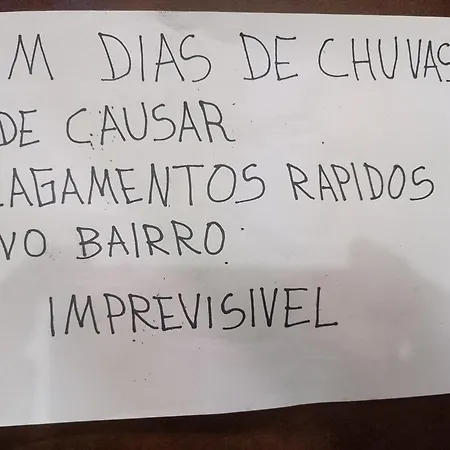 M DIAS DE CHUVAS
DE CAUSAR
LAGAMENTOS RAPIDOS
NO BAIRRO
IMPREVISIVEL